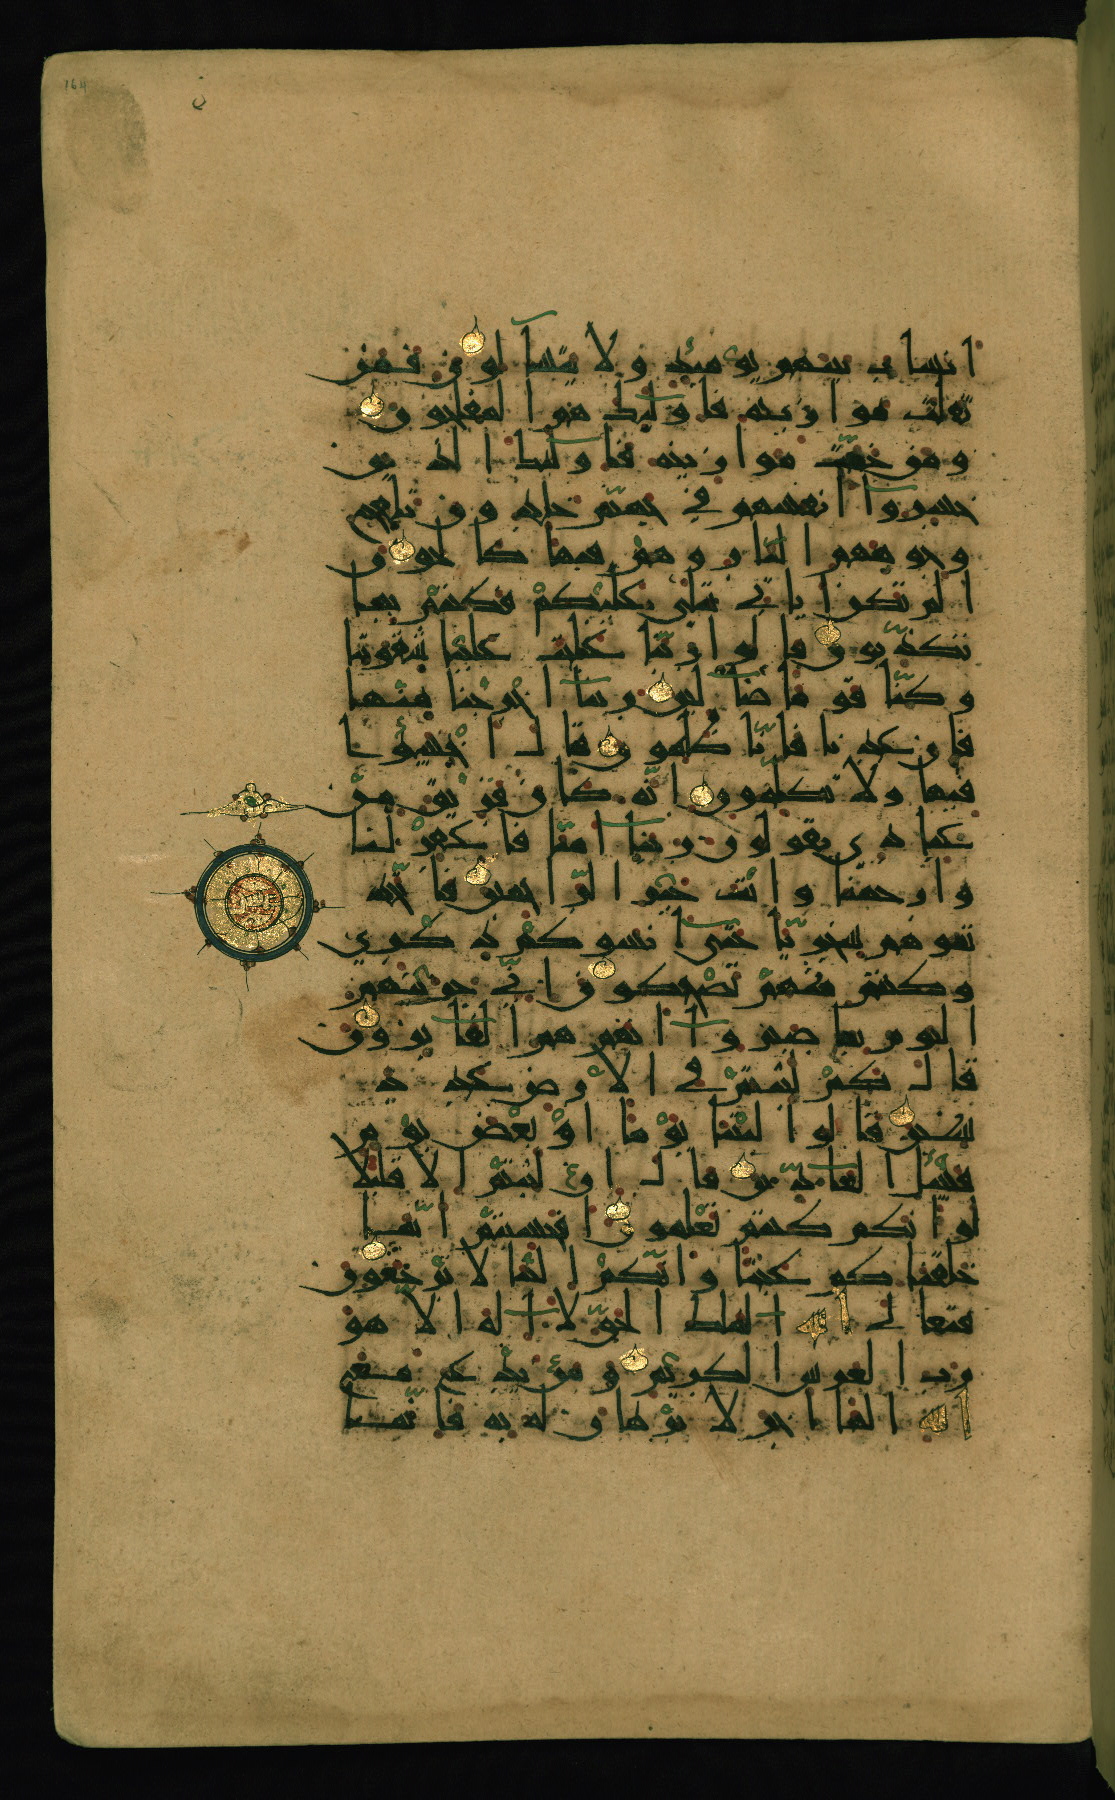 164
انساب بينهم يومئذ ولا يتسآلون فمن
ثقلت موازينه فاولئك هم المفلحون
ومن خفت موازينه فاولئك الذين
خسروا انفسهم في جهنم خلدون تلفح
وجوههم النار وهم فيها كالحون
الم تكن اياتي تتلى عليكم فكنتم بها
تكذبون قالوا ربنا غلبت علينا شقوتنا
وكنا قوما ضالين ربنا اخرجنا منها
فان عدنا فانا ظلمون قال اخسؤا
فيها ولا تكلمون انه كان فريق من
عبادي يقولون ربنا امنا فاغفر لنا
وارحمنا وانت خير الراحمين فاتخذ
تموهم سخريا حتى انسوكم ذكري
وكنتم منهم تضحكون اني جزيتهم
اليوم بما صبروا انهم هم الفائزون
قال كم لبثتم في الارض عدد
سنين قالوا لبثنا يوما او بعض يوم
فسئل العادين قال ان لبثتم الا قليلا
لو انكم كنتم تعلمون افحسبتم انما
خلقناكم عبثا وانكم الينا لا ترجعون
فتعالى الله الملك الحق لا اله الا هو
رب العرش الكريم ومن يدع مع
الله الها اخر لا برهان له به فانما